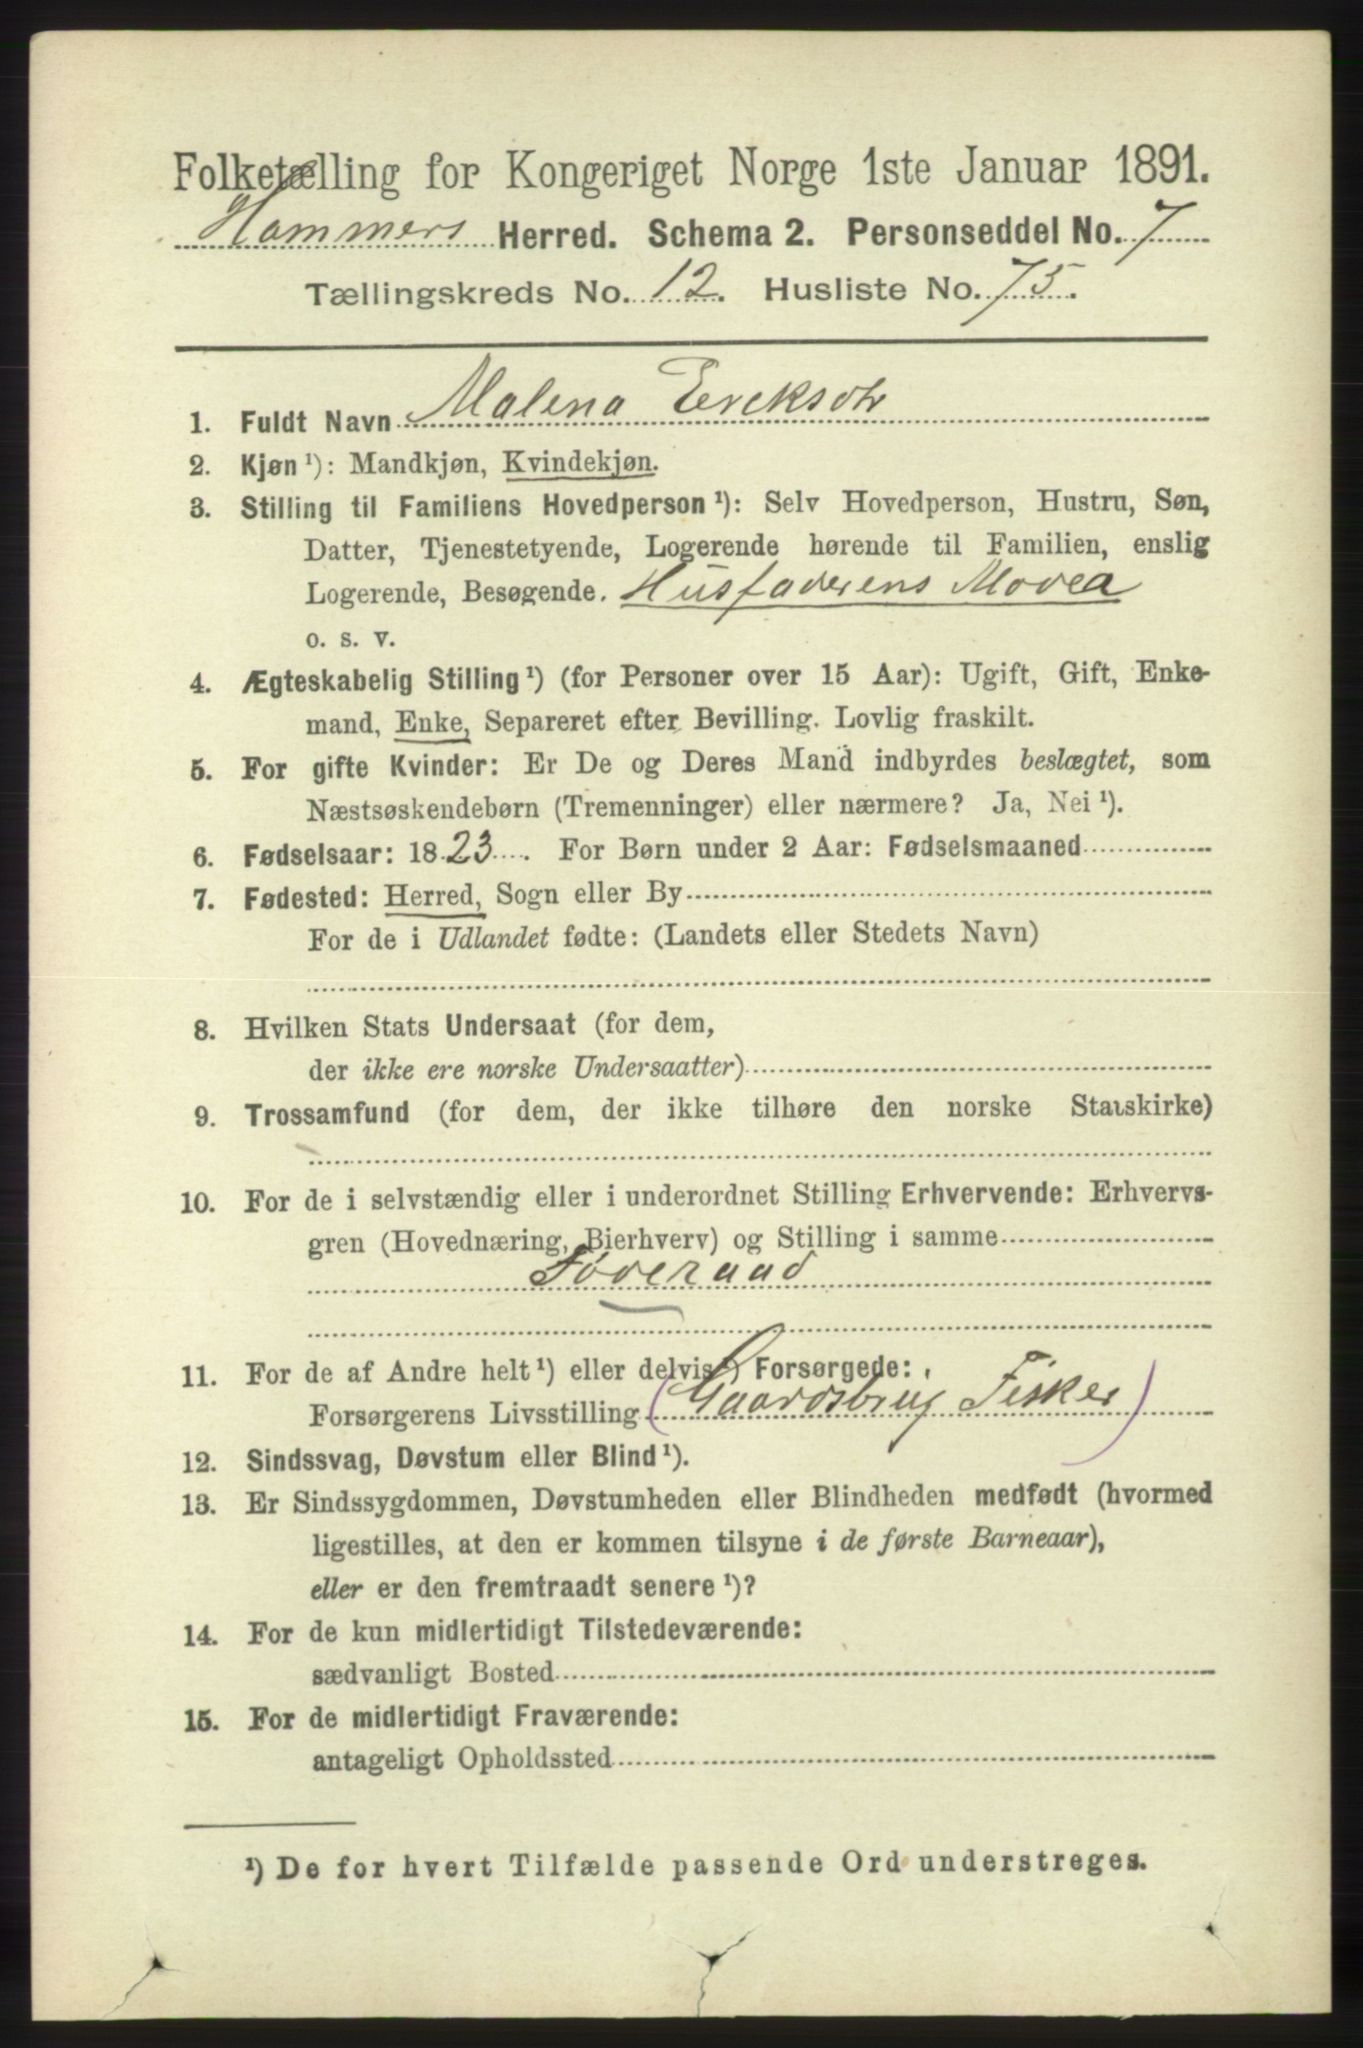 Folketælling for Kongeriget Norge 1ste Januar 1891.
Hammers Herred. Schema 2. Personseddel No. 7
Tællingskreds No. 12. Husliste No. 75.
1. Fuldt Navn Malena Ercksdtr
2. Kjøn ¹): Mandkjøn, Kvindekjøn.
3. Stilling til Familiens Hovedperson ¹): Selv Hovedperson, Hustru, Søn,
Datter, Tjenestetyende, Logerende hørende til Familien, enslig
Logerende, Besøgende. Husfaderens Moder
o. s. v.
4. Ægteskabelig Stilling ¹) (for Personer over 15 Aar): Ugift, Gift, Enke-
mand, Enke, Separeret efter Bevilling. Lovlig fraskilt.
5. For gifte Kvinder: Er De og Deres Mand indbyrdes beslægtet, som
Næstsøskendebørn (Tremenninger) eller nærmere? Ja, Nei ¹).
6. Fødselsaar: 1823. For Børn under 2 Aar: Fødselsmaaned
7. Fødested: Herred, Sogn eller By
For de i Udlandet fødte: (Landets eller Stedets Navn)
8. Hvilken Stats Undersaat (for dem,
der ikke ere norske Undersaatter)
9. Trossamfund (for dem, der ikke tilhøre den norske Statskirke)
10. For de i selvstændig eller i underordnet Stilling Erhvervende: Erhvervs-
gren (Hovednæring, Bierhverv) og Stilling i samme
Føderaad
11. For de af Andre helt ¹) eller delvis ¹) Forsørgede:
Forsørgerens Livsstilling (Gaardsbrug Fisker)
12. Sindssvag, Døvstum eller Blind ¹).
13. Er Sindssygdommen, Døvstumheden eller Blindheden medfødt (hvormed
ligestilles, at den er kommen tilsyne i de første Barneaar),
eller er den fremtraadt senere ¹)?
14. For de kun midlertidigt Tilstedeværende:
sædvanligt Bosted
15. For de midlertidigt Fraværende:
antageligt Opholdssted
¹) De for hvert Tilfælde passende Ord understreges.